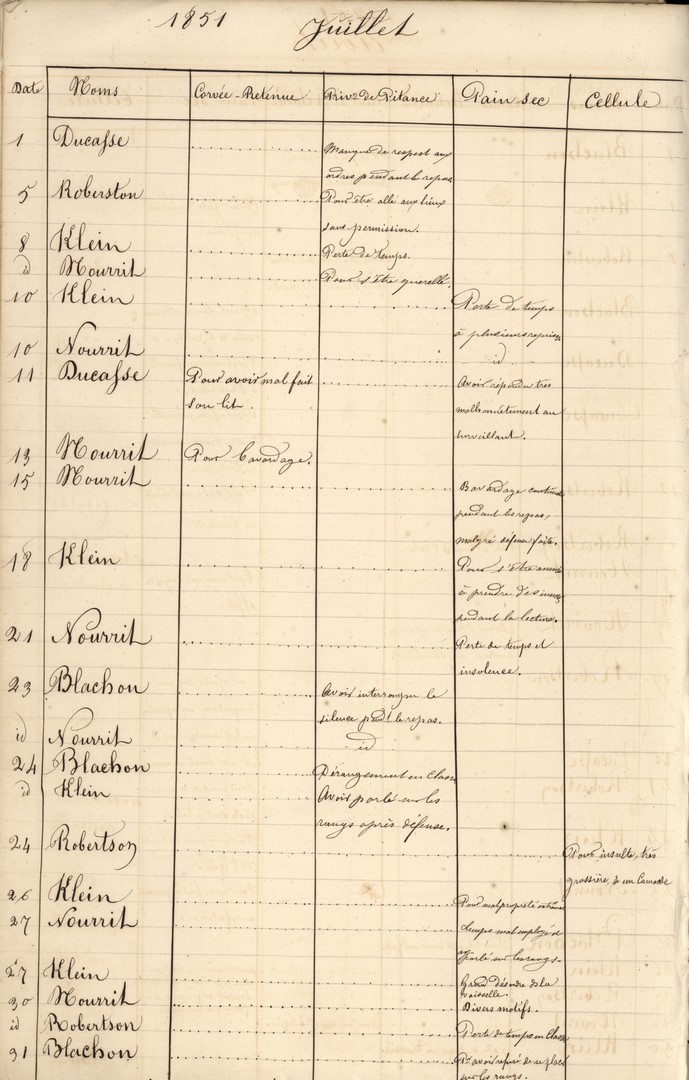 1851 Juillet
Date Noms Corvée-Retenue Privon de Pitance Pain sec Cellule
1 Ducasse Manque de respect aux
ordres pendant le repas
5 Roberston Pour être allé aux lieux
sans permission.
8 Klein Perte de temps.
id Nourrit Pour s'être querellé.
10 Klein Perte de temps
à plusieurs reprises
10 Nourrit id
11 Ducasse Pour avoir mal fait Avoir répondu très
son lit. malhonnêtement au
surveillant.
13 Nourrit Pour bavardage.
15 Nourrit Bavardage continuel
pendant les repas,
malgré défense faite.
18 Klein Pour s'être amusé
à prendre des
pendant la lecture.
21 Nourrit Perte de temps et
insolence.
23 Blachon Avoir interrompu le
silence pendt le repas.
id Nourrit id
24 Blachon Dérangement en classe
id Klein Avoir parlé sur les
rangs après défense.
24 Robertson Pour insulte, très
grossière, à un camarade
26 Klein Pour malpropreté
27 Nourrit temps mal employé et
parlé sur les rangs.
27 Klein Grand désordre de la
vaisselle.
30 Nourrit Divers motifs.
id Robertson Perte de temps en Classe
31 Blachon Pr avoir refusé de se placer
sur les rangs.